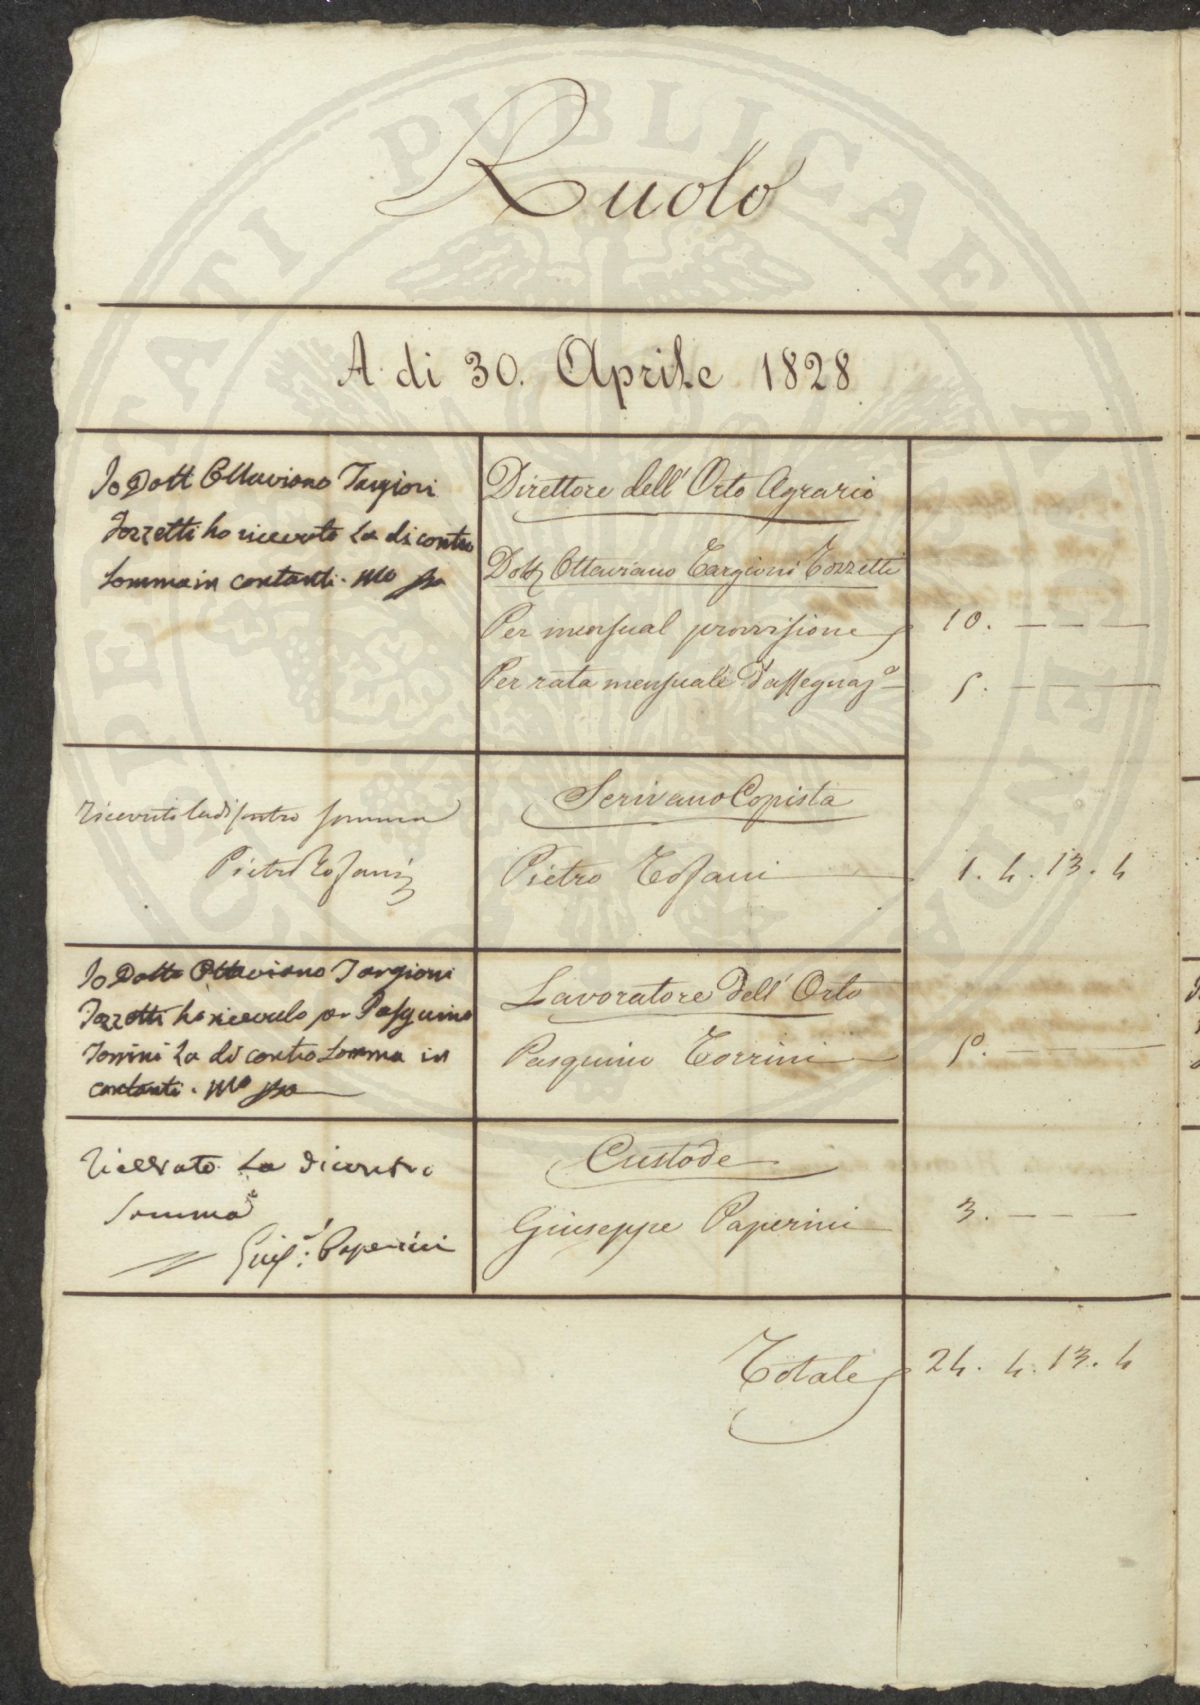 Ruolo
A di 30. Aprile 1828
Io Dott Ottaviano Targioni
Tozzetti ho ricevuto La di contro
Somma in contanti. Mo ppo
Direttore dell' Orto Agrario
Dott Ottaviano Targioni Tozzetti
Per mensual provvisione 10. — — —
Per rata mensuale d'assegnaz.e 5. — — —
Ricevuto la di contro somma
Pietro Tofani
Scrivano Copista
Pietro Tofani 1. 4. 13. 4
Io Dotto Ottaviano Targioni
Tozzetti ho ricevuto per Pasquino
Torrini La di contro Somma in
contanti. Mo ppo
Lavoratore dell' Orto
Pasquino Torrini 5. — — —
Ricevuto La di contro
Somma
Gius.e Paperini
Custode
Giuseppe Paperini 3. — — —
Totale 24. 4. 13. 4